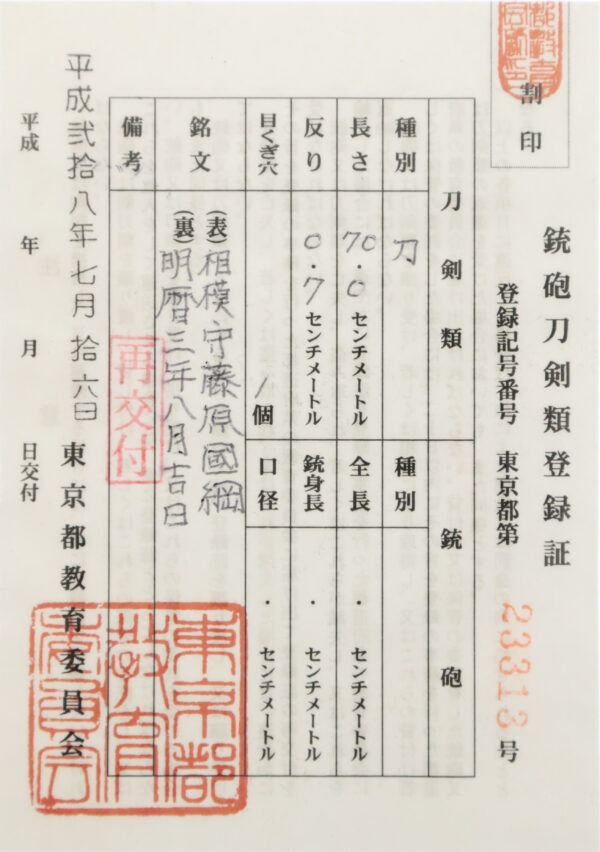 割印
銃砲刀剣類登録証
登録記号番号 東京都第 23313 号
刀剣類 銃砲
種別 刀 種別
長さ 70.0 センチメートル 全長 . センチメートル
反り 0.7 センチメートル 銃身長 . センチメートル
目くぎ穴 1個 口径 . センチメートル
銘文 (表) 相模守藤原國綱
(裏) 明暦三年八月吉日
備考
再交付
平成弐拾八年七月拾六日
東京都教育委員会
平成 年 月 日交付
東京都教育委員会